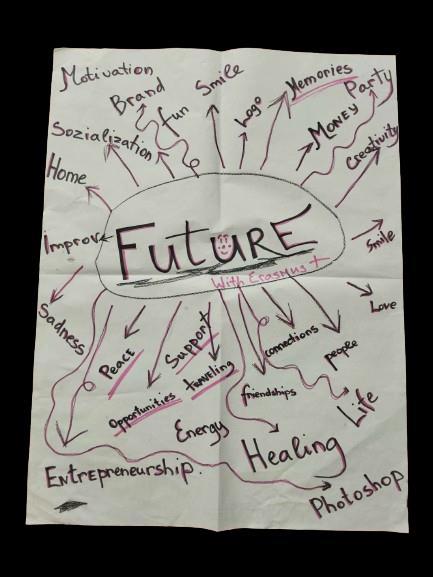 Motivation
Brand
fun
Smile
Logo
Memories
Party
Money
Creativity
Sozialization
Home
Improv
FuturE
With Erasmus +
Smile
Love
Sadness
Peace
Support
connections
people
Opportunities
Traveling
friendships
Life
Energy
Healing
Entrepreneurship.
Photoshop